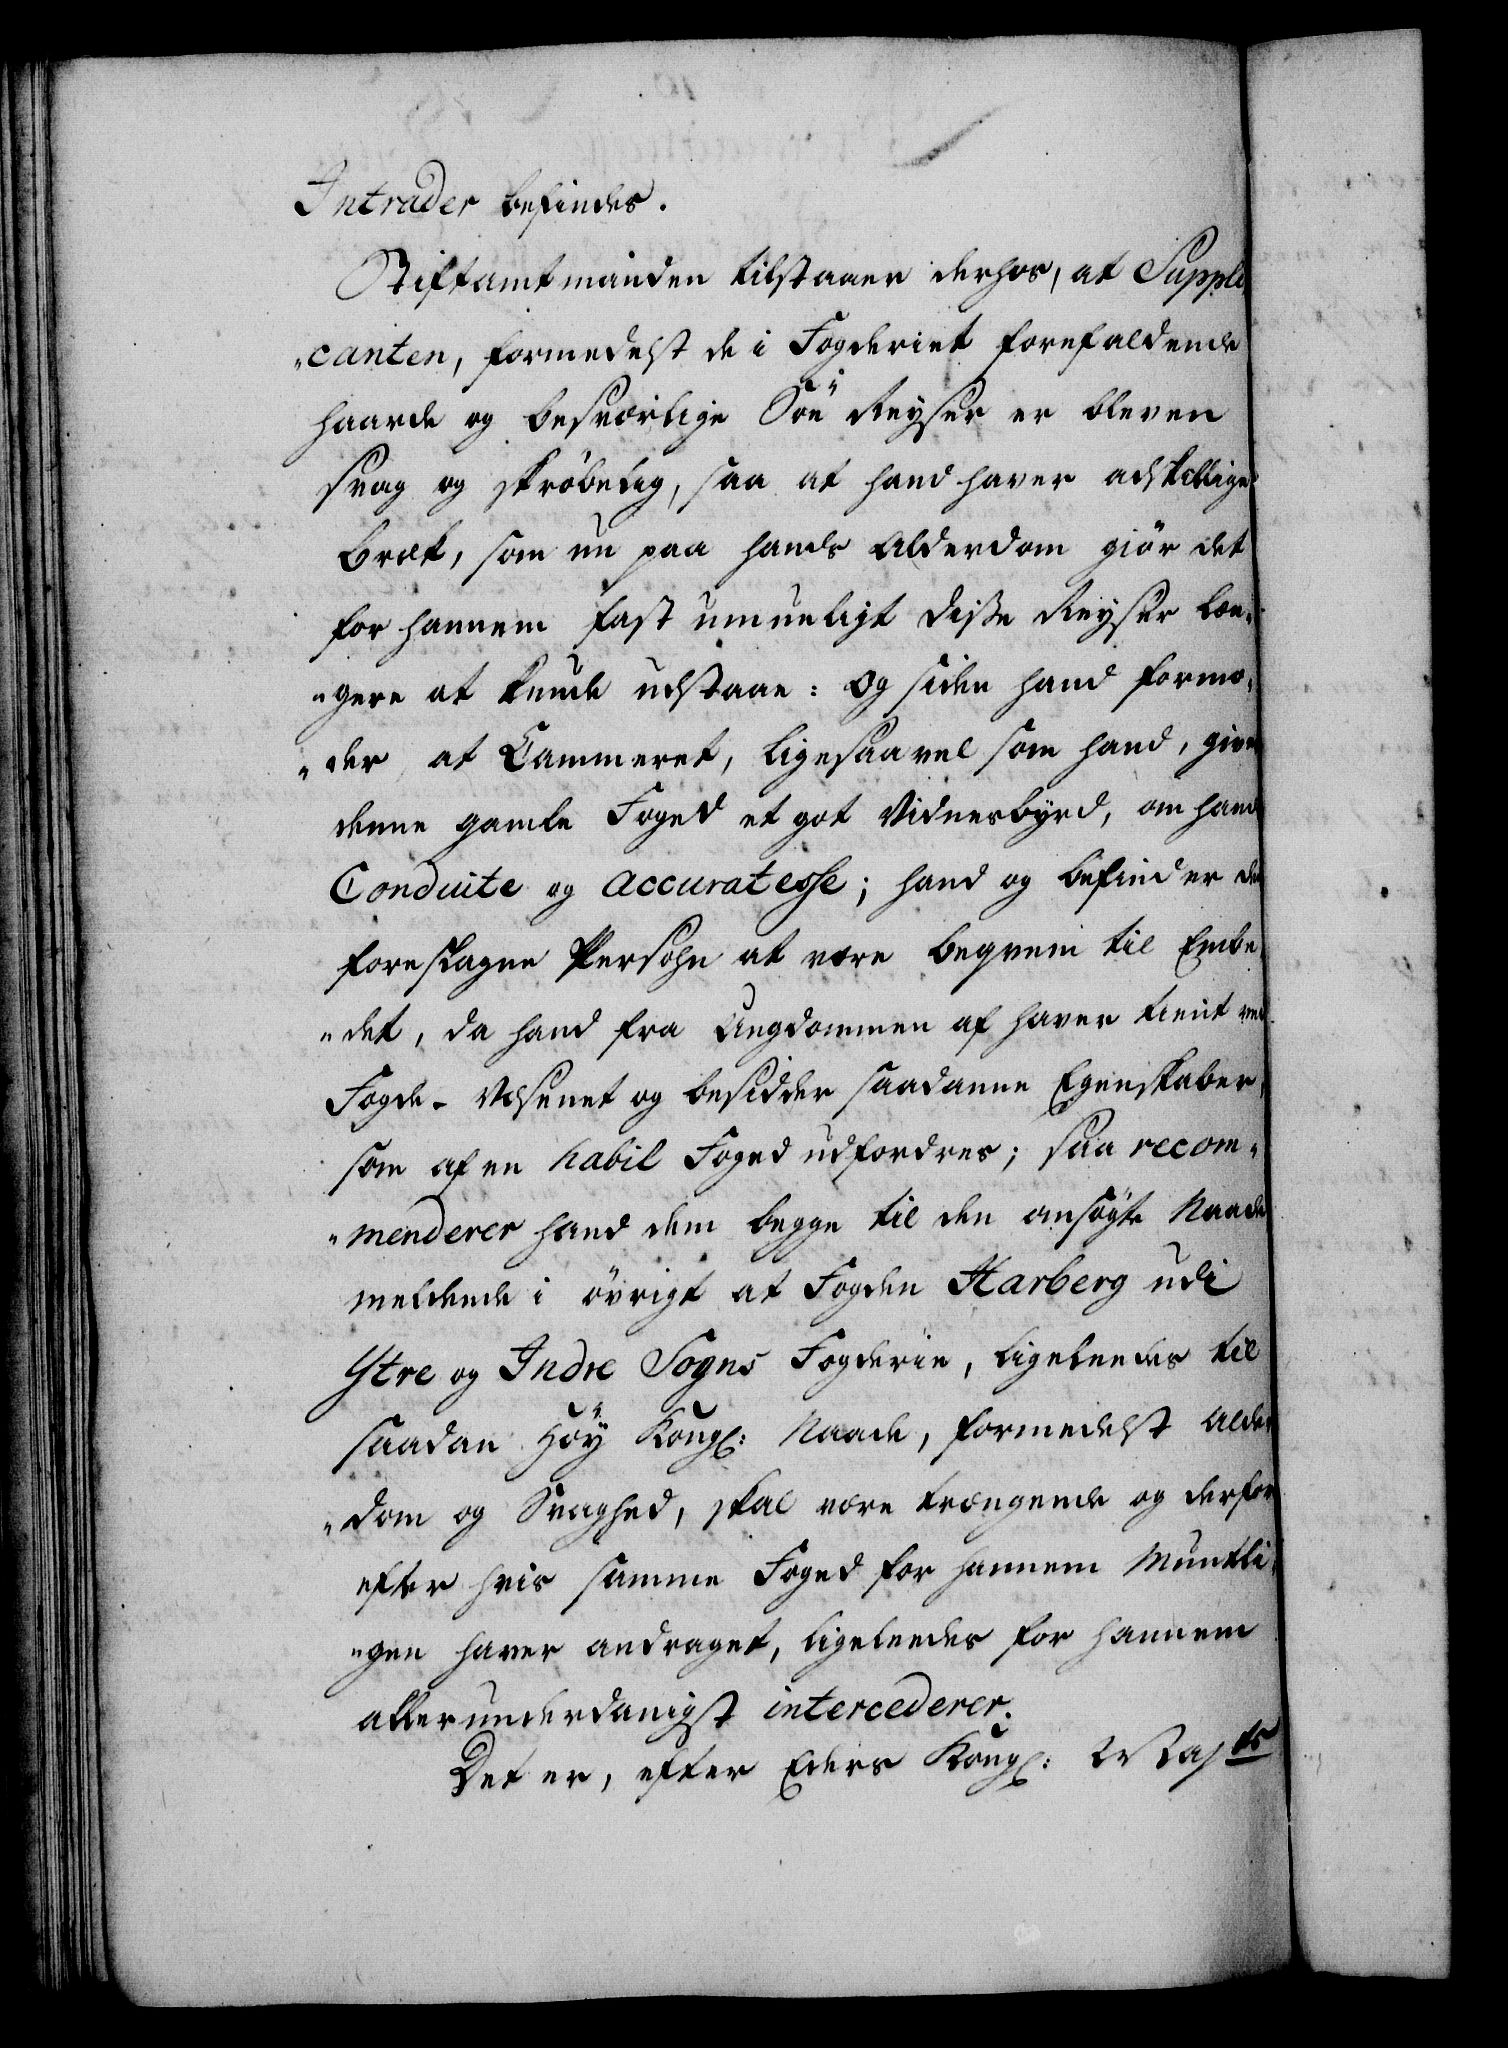 Intrader befindes.
Stiftamtmanden tilstaaer derhos, at Suppli
"canten, formedelst de i Fogderiet forefaldende
haarde og besværlige Söe Reyser er bleven
svag og skröbelig, saa at hand haver adskillige
Bræk, som nu paa hands Alderdom giör det
for hannem fast umueligt disse Reyser læn-
"gere at kunde udstaae: Og siden hand formo-
"der, at Cammeret, ligesaavel som hand, giver
denne gamle Foged et got Vidnesbyrd, om hands
Conduite og accuratesse; hand og befinder den
foreslagne Persohn at være beqvem til Embe-
"det, da hand fra Ungdommen af haver tient ved
Fogde-Væsenet og besidder saadanne Egenskaber,
som af en habil Foged udfordres; saa recom-
"menderer hand dem begge til den ansøgte Naade
meldende i övrigt at Fogden Harberg udi
Ytre og Indre Sogns Fogderie, ligeleedes til
saadan Höy Kongl: Naade, formedelst Alder
"dom og Svaghed, skal være trængende og derfor
efter hvis samme Foged for hannem Mundtli-
"gen haver andraget, ligeleedes for hannem
allerunderdanigst intercederer.
Det er, efter Eders Kongl: Mayts